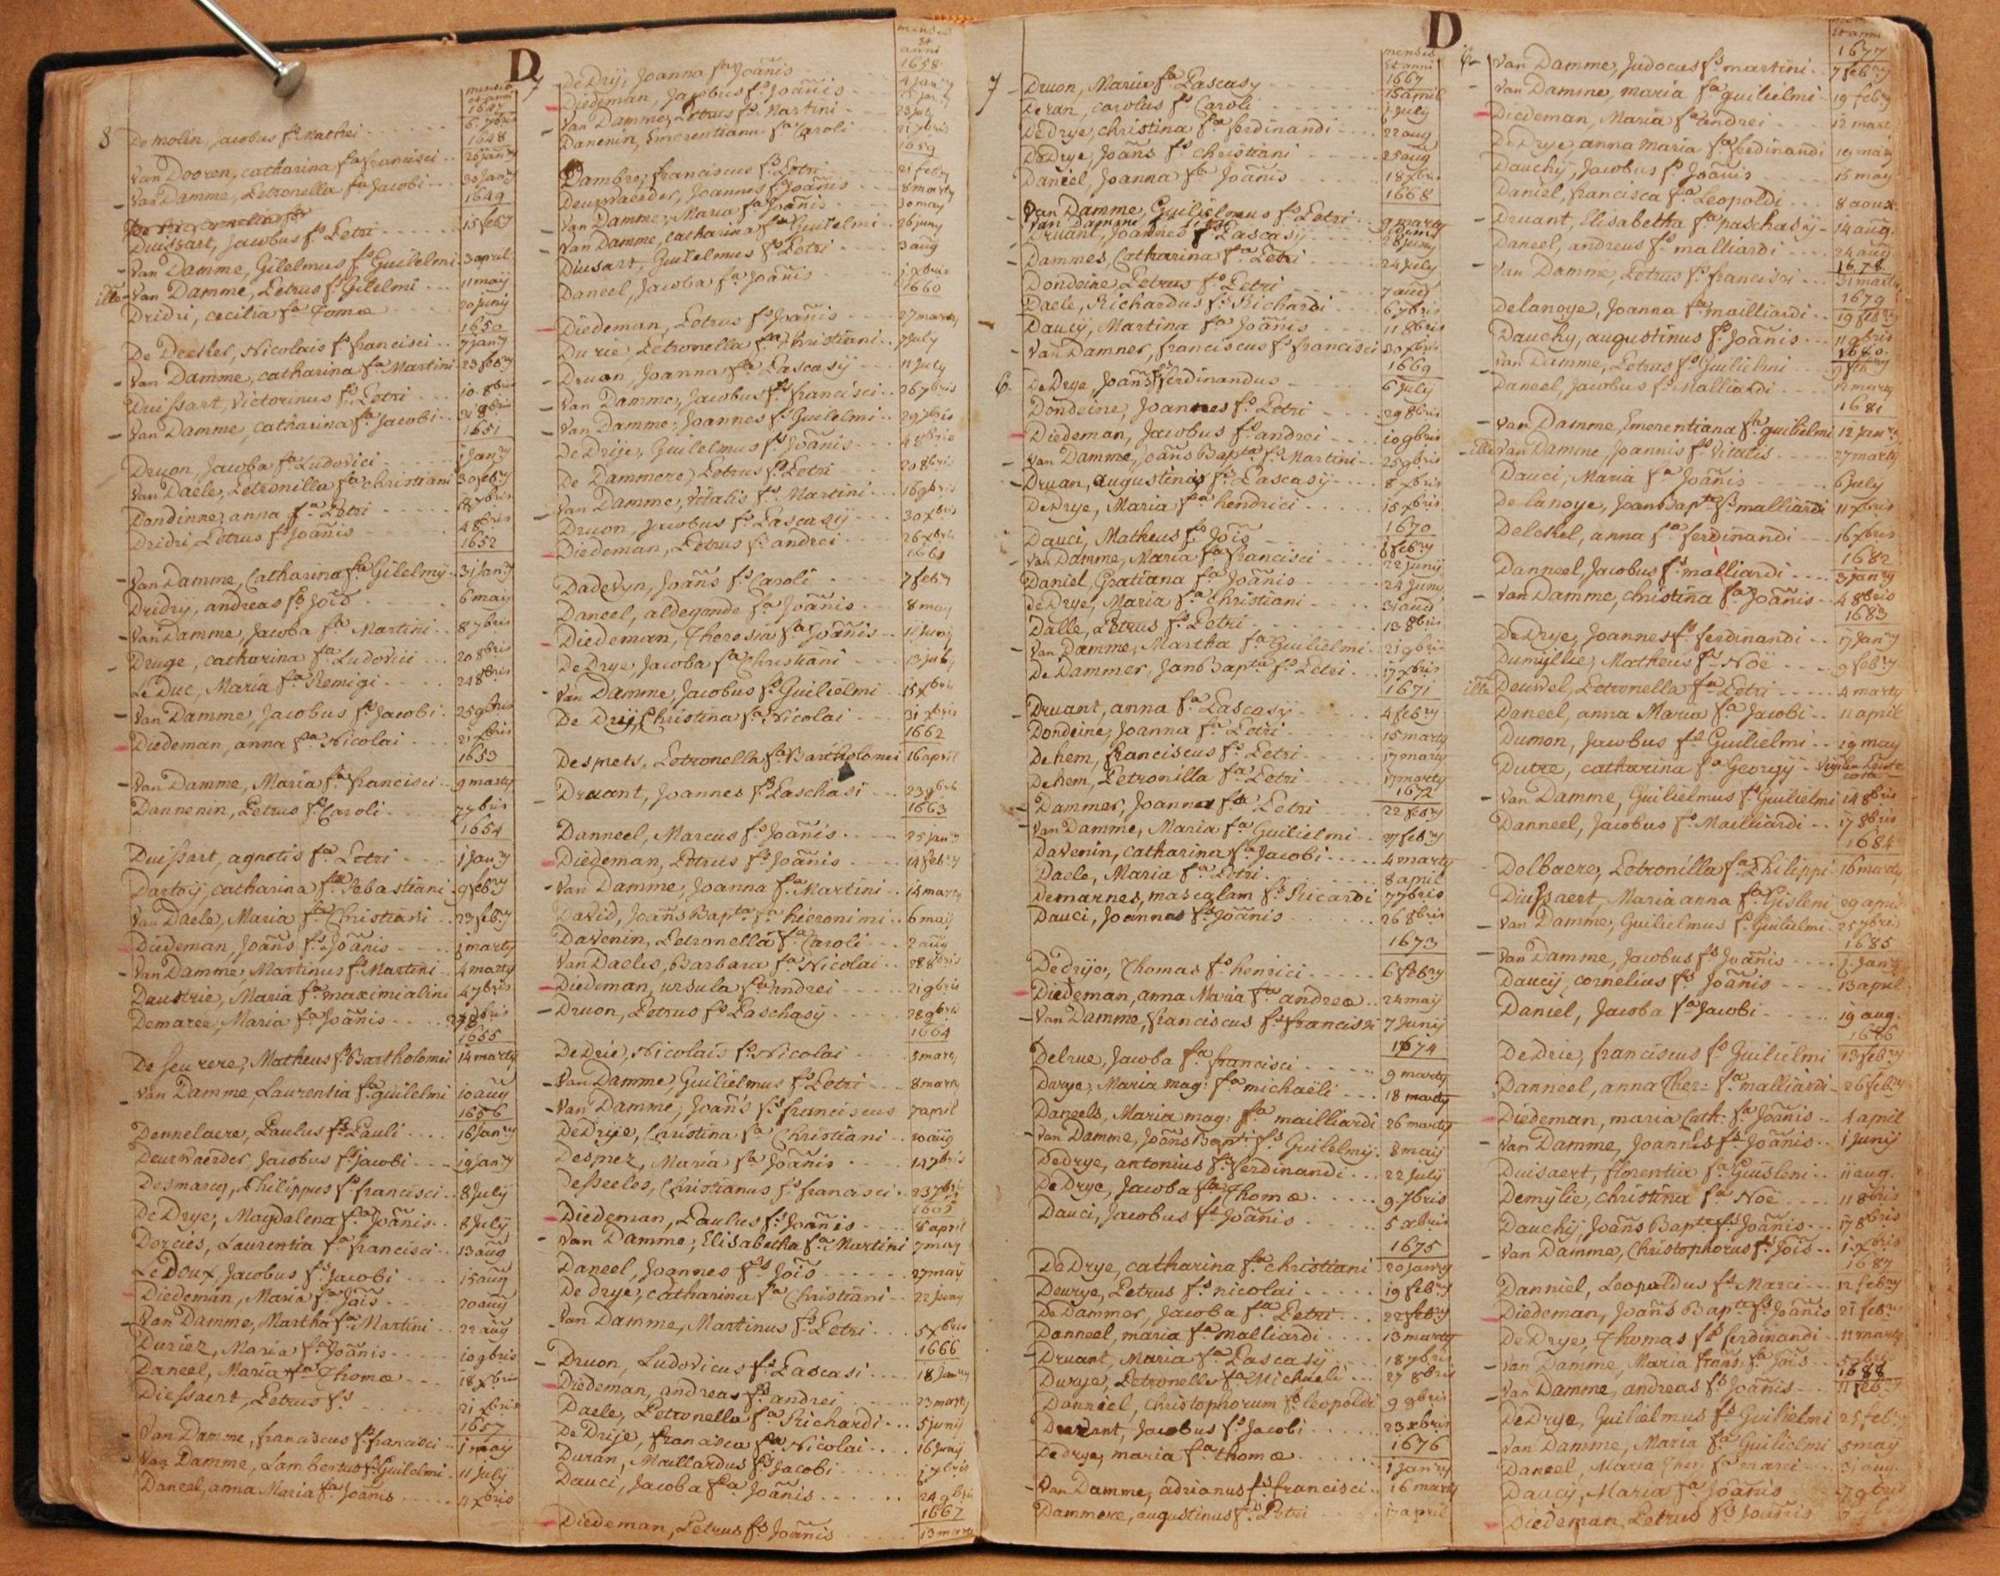 D
mensis
et anni
1647
8 De molin, jacobus fs Mathei 6 7bris
1648
Van Dooren, catharina fa francisci 26 jany
Van Damme, Petronella fa Jacobi 30 Jany
1649
Duissart, Jacobus fs Petri 15 feby
Van Damme, Gilelmus fs Guilelmi 3 april
illeg Van Damme, Petrus fs Gilelmi 11 maij
Dridri, cecilia fa Tomæ 20 junij
1650
De Decker, Nicolais fs francisci 7 jany
Van Damme, catharina fa Martini 23 feby
Duissart, Victorinus fs Petri 10 8bris
Van Damme, catharina fa Jacobi 31 9bris
1651
Druon, Jacoba fa Ludovici 1 jany
Van Daele, Petronilla fa christiani 30 feby
Dondinne, anna fa Petri
Dridri Petrus fs Joãnis 4 8bris
1652
Van Damme, Catharina fa Gilelmy 31 jany
Dridry, andreas fs Jois 6 may
Van Damme, Jacoba fa Martini 8 7bris
Druge, catharina fa Ludovici 20 8bris
Le Duc, Maria fa Remigi 24 8bris
Van Damme, Jacobus fs Jacobi 25 9bris
Diedeman, anna fa Nicolai 21 xbris
1653
Van Damme, Maria fa francisci 9 marty
Dannenin, Petrus fs Caroli 7 7bris
1654
Duissart, agnetis fa Petri 1 Jany
Dartoij catharina fa Sebastiani 9 feby
Van Daele, Maria fa Christiani 23 feby
Diedeman, Joãns fs Joãnis 1 marty
Van Damme, Martinus fs Martini 4 marty
Daustrie, Maria fa maximialini 4 7bris
Demaree, Maria fa Joãnis
1655
De seurere, Matheus fs Bartholomei 14 marty
Van Damme, Laurentia fa guilelmi 10 aug
1656
Dennelaere, Paulus fs Pauli 16 Jany
Deurwaerder, Jacobus fs Jacobi 19 Jany
Desmarcq, Philippus fs francisci 8 July
De Drye, Magdalena fa Joãnis 8 July
Dorcies, Laurentia fa francisci 13 aug
Le Doux, Jacobus fs Jacobi 15 aug
Diedeman, Maria fa Jois 20 aug
Van Damme, Martha fa Martini 22 aug
Duriez, Maria fa Joãnis 10 9bris
Daneel, Maria fa Thomæ 18 xbris
Diessaert, Petrus fs 21 xbris
1657
Van Damme, franciscus fs francisci 1 maij
Van Damme, Lambertus fs Guilelmi 11 July
Daneel, anna Maria fa Joãnis 11 xbris
mensis
et
anni
1658
7 De Drij, Joanna fa Joãnis 4 Jany
Diedeman, Jacobus fs Joãnis
Van Damme, Petrus fs Martini 23 july
Danenin, Emerentiana fa Caroli 21 7bris
1659
Dambre, franciscus fs Petri 21 feby
Deuwaerder, Joannes fs Joãnis 8 marty
Van Damme, Maria fa Joãnis 30 may
Van Damme, catharina fa Guilelmi 26 juny
Diusart, Guilelmus fs Petri 3 aug
Daneel, Jacoba fa Joãnis 1 xbris
1660
Diedeman, Petrus fs Joãnis 27 marty
Durie Petronella fa Christiani 7 July
Druon, Joanna fa Pascasij 11 July
Van Damme, Jacobus fs francisci 26 7bris
Van Damme, Joannes fs Guilelmi 29 7bris
De Drije, Guilelmus fs Joãnis 4 8bris
De Dammere, Petrus fs Petri 20 8bris
Van Damme, Vitalis fs Martini 16 9bris
Druon, Jacobus fs Pascasij 30 xbris
Diedeman, Petrus fs andrei 26 xbris
1661
Dadevyn, Joãns fs Caroli 7 feby
Daneel, aldegonde fa Joãnis 8 may
Diedeman, Theresia fa Joãnis 11 Junij
De Drye, Jacoba fa Christiani 13 july
Van Damme, Jacobus fs Guilielmi 15 xbris
De Drij, Christina fa Nicolai 31 xbris
1662
Desmets, Petronella fa Bartholomei 16 april
Druant, Joannes fs Paschasi 23 9bris
1663
Danneel, Marcus fs Joãnis 25 jany
Diedeman, Petrus fs Joãnis 14 feby
Van Damme, Joanna fa Martini 14 marty
David, Joãns Bapta fs hieronimi 6 maij
Davenin, Petronella fa Caroli 2 aug
Van Daeles, Barbara fa Nicolai 28 8bris
Diedeman, ursula fa andrei 21 9bris
Druon, Petrus fs Paschasij 28 9bris
1664
De Drie, Nicolais fs Nicolai
Van Damme, Guilielmus fs Petri 8 marty
Van Damme, Joãns fs franciscus 7 april
De Drije, Christina fa Christiani 20 aug
Despiez, Maria fa Joãnis 14 7bris
Desseeles, Christianus fs francisci 23 7bris
1665
Diedeman, Paulus fs Joãnis 8 april
Van Damme, Elisabetha fa Martini 7 may
Daneel, Joannes fs Jois 27 maij
De drye, catharina fa Christiani 22 Juny
Van Damme, Martinus fs Petri 5 xbris
1666
Druon, Ludovicus fs Pascasi 18 Jany
Diedeman, andreas fs andrei 23 marty
Daele, Petronella fa Richardi 5 junij
De Drije, francisca fa Nicolai 16 Junij
Duran, Mallardus fs Jacobi
Dauci, Jacoba fa Joãnis 24 9bris
1667
Diedeman, Petrus fs Joãnis 13 marty
D
mensis
et anni
1667
7 Druon, Maria fa Pascasy 15 april
Deran, carolus fs Caroli 1 July
De Drye, christina fa ferdinandi 22 aug
De Drye, Joãns fs christiani 25 aug
Daniel, Joanna fa Joãnis 18 xbris
1668
Van Damme, Guilielmus fs Petri 9 marty
Druant, Joannes fs Pascasy 28 juny
Dammes, Catharina fa Petri 24 July
Dondeine, Petrus fs Petri 7 aug
Daele, Richardus fs Richardi 6 7bris
Daucij, Martina fa Joãnis 11 8bris
Van Dammer, franciscus fs francisci 30 xbris
1669
6 De Drye, Joãns fs ferdinandus 6 July
Dondeine, Joannes fs Petri 29 8bris
Diedeman, Jacobus fs andrei 10 9bris
Van Damme, Joãns Bapta fs Martini 25 9bris
Druan, augustinus fs Pascasy 8 xbris
De Drye, Maria fa hendrici 15 xbris
1670
Dauci, Matheus fs Jois 8 feby
Van Damme, Maria fa francisci 22 Junij
Daniel, Gratiana fa Joãnis 24 Juny
de Drye, Maria fa Christiani 31 aug
Dalle, Petrus fs Petri 13 8bris
Van Damme, Martha fa Guilielmi 21 9bris
De Dammer, Jan Bapta fs Petri 17 xbris
1671
Druant, anna fa Pascasij 4 feby
Dondeine, Joanna fa Petri 15 marty
De hem, franciscus fs Petri 17 marty
De hem, Petronilla fa Petri 17 marty
1672
Dammer, Joanna fa Petri 22 feby
Van Damme, Maria fa Guilielmi 27 feby
Davenin, catharina fa Jacobi 4 marty
Daele, Maria fa Petri 8 april
Demarnes, mascalam fs Ricardi 7 7bris
Dauci, Joannes fs Joãnis 26 8bris
1673
De Drije, Thomas fs henrici 6 feby
Diedeman, anna Maria fa andreæ 24 maij
Van Damme, franciscus fs francisci 7 Junij
1674
Delrue, Jacoba fa francisci 9 marty
Durye, Maria mag: fa michaëli 18 marty
Daneels, Maria mag: fa mailliardi 26 marty
Van Damme, Joãns Bapt fs Guilelmy 8 maij
De drye, antonius fs ferdinandi 22 July
De Drye, Jacoba fa Thomæ 9 7bris
Dauci, Jacobus fs Joãnis 5 xbris
1675
De Drye, catharina fa christiani 20 jany
Deurye, Petrus fs nicolai 19 feby
De Dammer, Jacoba fa Petri 22 feby
Danneel, maria fa malliardi 13 marty
Druant, Maria fa Pascasij 18 7bris
Durye, Petronella fa Michaeli 27 8bris
Danneel, Christophorum fs leopoldi 9 9bris
Druant, Jacobus fs Jacobi 23 xbris
1676
De drye, maria fa thomæ 1 jany
Van Damme, adrianus fs francisci 16 marty
Dammere, augustinus fs Petri 17 april
et anni
1677
Van Damme, Judocus fs martini 7 feby
Van Damme, maria fa guilielmi 19 feby
Diedeman, Maria fa andrei 12 mart
De Drye anna maria fa ferdinandi 19 may
Dauchij, Jacobus fs Joãnis 15 may
Daniel, francisca fa Leopoldi 8 aoux
Druant, Elisabetha fa paschasij 14 aug
Daneel, andreus fs malliardi 24 aug
1678
Van Damme, Petrus fs francisci 31 marty
1679
Delanoye, Joanna fa mailliardi 19 feby
Dauchy, augustinus fs Joãnis 11 9bris
1680
Van Damme, Petrus fs Guilielmi
Daneel, Jacobus fs Malliardi 12 marty
1681
Van Damme, Emerentiana fa guilielmi 12 Jany
Van Damme, Joannis fs Vitalis 27 marty
Dauci, Maria fa Joãnis 6 July
De lanoye, Joan Bapta fs malliardi 11 xbris
Delckel, anna fa ferdinandi 16 xbris
1682
Danneel, Jacobus fs malliardi 3 Jany
Van Damme, christina fa Joãnis 4 8bris
1683
De Drye, Joannes fs ferdinandi 17 Jany
Dumyllie, Matheus fs Noë 9 feby
Deuwel, Petronella fa Petri 4 marty
Daneel, anna Maria fa Jacobi 11 april
Dumon, Jacobus fs Guilielmi 19 may
Dutre, catharina fa Georgij
Van Damme, Guilielmus fs Guilielmi 14 8bris
Danneel, Jacobus fs Mailliardi 17 8bris
1684
Delbaere, Petronilla fa Philippi 16 marty
Duissaert, Maria anna fa Gisleni 29 april
Van Damme, Guilielmus fs Guilielmi 25 7bris
1685
Van Damme, Jacobus fs Joãnis
Daucij cornelius fs Joãnis 13 april
Daniel, Jacoba fa Jacobi 19 aug
1686
De Drie, franciscus fs Guilielmi 13 feby
Danneel, anna Ther: fa malliardi 26 feby
Diedeman, maria Cath: fa Joãnis 4 april
Van Damme, Joannes fs Joãnis 1 Junij
Duisaert, florentia fa Guisleni 11 aug
Demylie, christina fa Noë 11 8bris
Dauchij, Joãns Bapta fs Joãnis 17 8bris
Van Damme, Christophorus fs Jois
1687
Danniel, Leopoldus fs Marci 12 feby
Diedeman, Joãns Bapta fs Joãnis 21 feby
De Drye, Thomas fs ferdinandi 11 marty
Van Damme, Maria frañs fa Jois
1688
Van Damme, andreas fs Joãnis 11 feby
De Drye, Guilielmus fs Guilielmi 25 feby
Van Damme, Maria fa Guilielmi 5 maij
Daneel, Maria Ther: fa marci 31 aug
Daucij, Maria fa Joãnis
Diedeman, Petrus fs Joãnis